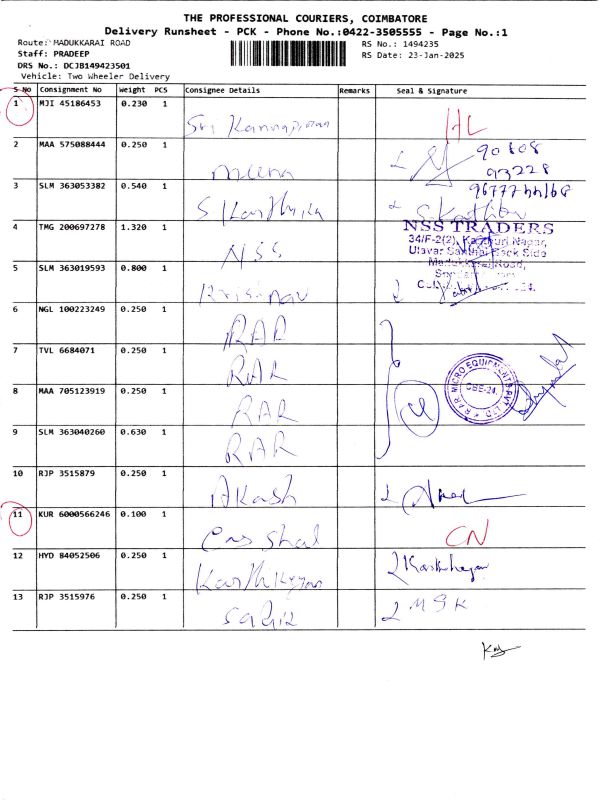 THE PROFESSIONAL COURIERS, COIMBATORE
Delivery Runsheet - PCK - Phone No.:0422-3505555 - Page No.:1
Route: MADUKKARAI ROAD
RS No.: 1494235
Staff: PRADEEP
RS Date: 23-Jan-2025
DRS No.: DCJB149423501
Vehicle: Two Wheeler Delivery
S No Consignment No Weight PCS Consignee Details Remarks Seal & Signature
1 MJI 45186453 0.230 1
Sri HL
2 MAA 575088444 0.250 1
Meena 90808
93228
3 SLM 363053382 0.540 1
S Karthika S. Karthika
4 TMG 200697278 1.320 1 NSS TRADERS
34/F-2(2), Kasthuri Nagar,
NSS Ulavar Santhai Back Side
Madukkarai Road,
5 SLM 363019593 0.800 1
6 NGL 100223249 0.250 1
RAR
7 TVL 6684071 0.250 1
RAR RAR MICRO EQUIPMENTS PVT. LTD. CBE-24.
8 MAA 705123919 0.250 1
RAR
9 SLM 363040260 0.630 1
RAR
10 RJP 3515879 0.250 1
Akash
11 KUR 6000566246 0.100 1
CN
12 HYD 84052506 0.250 1
Karthikeyan
13 RJP 3515976 0.250 1
MSK